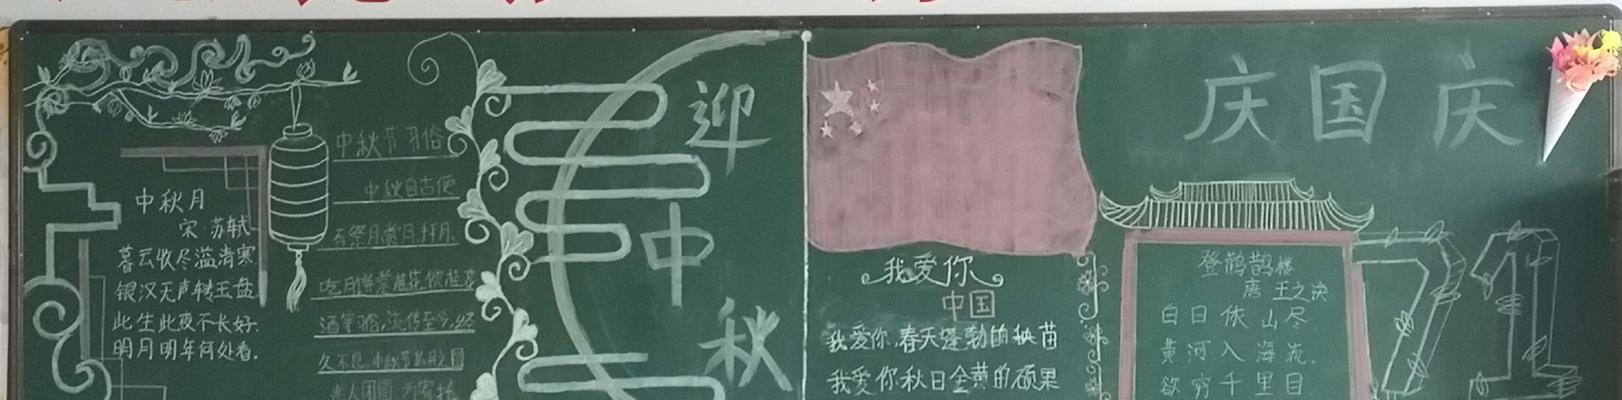 中秋月
宋 苏轼
暮云收尽溢清寒.
银汉无声转玉盘.
此生此夜不长好.
明月明年何处看.
中秋节习俗
中秋自古便
有祭月、赏月、拜月、
吃月饼、赏桂花、饮桂花
酒等习俗,流传至今,经
久不息.中秋节以月之圆
兆人团圆 为寄托
迎
中
秋
我爱你
中国
我爱你,春天蓬勃的秧苗
我爱你秋日金黄的硕果
庆国庆
登鹳鹊楼
唐 王之涣
白日依山尽
黄河入海流.
欲穷千里目
71